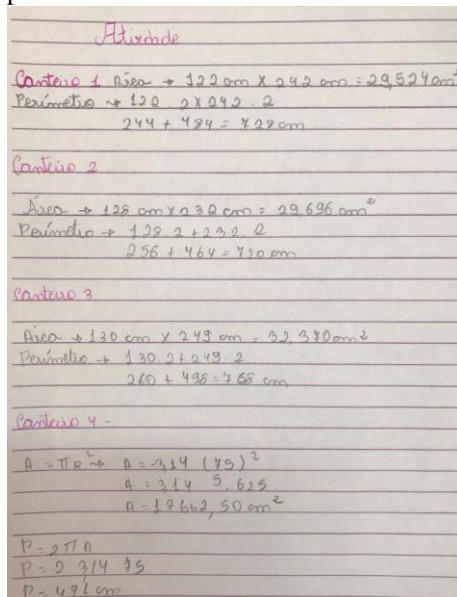 Atividade
Canteiro 1 Área → 122 cm X 242 cm = 29,524 cm²
Perímetro → 122 . 2 X 242 . 2
244 + 484 = 728 cm
Canteiro 2
Área → 128 cm x 232 cm = 29,696 cm²
Perímetro → 128 . 2 + 232 . 2
256 + 464 = 720 cm
Canteiro 3
Área → 130 cm x 249 cm = 32,370 cm²
Perímetro → 130 . 2 + 249 . 2
260 + 498 = 768 cm
Canteiro 4 -
A = πR² → A = 3,14 (75)²
A = 3,14 5.625
A = 17662,50 cm²
P = 2 π R
P = 2 3,14 75
P = 471 cm